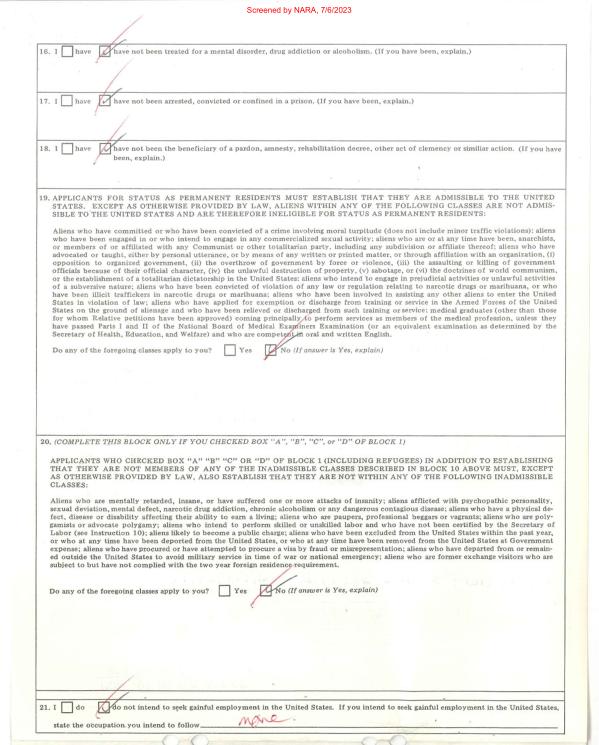 Screened by NARA, 7/6/2023
16. I have have not been treated for a mental disorder, drug addiction or alcoholism. (If you have been, explain.)
17. I have have not been arrested, convicted or confined in a prison. (If you have been, explain.)
18. I have have not been the beneficiary of a pardon, amnesty, rehabilitation decree, other act of clemency or similiar action. (If you have
been, explain.)
19. APPLICANTS FOR STATUS AS PERMANENT RESIDENTS MUST ESTABLISH THAT THEY ARE ADMISSIBLE TO THE UNITED
STATES. EXCEPT AS OTHERWISE PROVIDED BY LAW, ALIENS WITHIN ANY OF THE FOLLOWING CLASSES ARE NOT ADMIS-
SIBLE TO THE UNITED STATES AND ARE THEREFORE INELIGIBLE FOR STATUS AS PERMANENT RESIDENTS:
Aliens who have committed or who have been convicted of a crime involving moral turpitude (does not include minor traffic violations); aliens
who have been engaged in or who intend to engage in any commercialized sexual activity; aliens who are or at any time have been, anarchists,
or members of or affiliated with any Communist or other totalitarian party, including any subdivision or affiliate thereof; aliens who have
advocated or taught, either by personal utterance, or by means of any written or printed matter, or through affiliation with an organization, (i)
opposition to organized government, (ii) the overthrow of government by force or violence, (iii) the assaulting or killing of government
officials because of their official character, (iv) the unlawful destruction of property, (v) sabotage, or (vi) the doctrines of world communism,
or the establishment of a totalitarian dictatorship in the United States; aliens who intend to engage in prejudicial activities or unlawful activities
of a subversive nature; aliens who have been convicted of violation of any law or regulation relating to narcotic drugs or marihuana, or who
have been illicit traffickers in narcotic drugs or marihuana; aliens who have been involved in assisting any other aliens to enter the United
States in violation of law; aliens who have applied for exemption or discharge from training or service in the Armed Forces of the United
States on the ground of alienage and who have been relieved or discharged from such training or service; medical graduates (other than those
for whom Relative petitions have been approved) coming principally to perform services as members of the medical profession, unless they
have passed Parts I and II of the National Board of Medical Examiners Examination (or an equivalent examination as determined by the
Secretary of Health, Education, and Welfare) and who are competent in oral and written English.
Do any of the foregoing classes apply to you? Yes No (If answer is Yes, explain)
20. (COMPLETE THIS BLOCK ONLY IF YOU CHECKED BOX "A", "B", "C", or "D" OF BLOCK 1)
APPLICANTS WHO CHECKED BOX "A" "B" "C" OR "D" OF BLOCK 1 (INCLUDING REFUGEES) IN ADDITION TO ESTABLISHING
THAT THEY ARE NOT MEMBERS OF ANY OF THE INADMISSIBLE CLASSES DESCRIBED IN BLOCK 10 ABOVE MUST, EXCEPT
AS OTHERWISE PROVIDED BY LAW, ALSO ESTABLISH THAT THEY ARE NOT WITHIN ANY OF THE FOLLOWING INADMISSIBLE
CLASSES:
Aliens who are mentally retarded, insane, or have suffered one or more attacks of insanity; aliens afflicted with psychopathic personality,
sexual deviation, mental defect, narcotic drug addiction, chronic alcoholism or any dangerous contagious disease; aliens who have a physical de-
fect, disease or disability affecting their ability to earn a living; aliens who are paupers, professional beggars or vagrants; aliens who are poly-
gamists or advocate polygamy; aliens who intend to perform skilled or unskilled labor and who have not been certified by the Secretary of
Labor (see Instruction 10); aliens likely to become a public charge; aliens who have been excluded from the United States within the past year,
or who at any time have been deported from the United States, or who at any time have been removed from the United States at Government
expense; aliens who have procured or have attempted to procure a visa by fraud or misrepresentation; aliens who have departed from or remain-
ed outside the United States to avoid military service in time of war or national emergency; aliens who are former exchange visitors who are
subject to but have not complied with the two year foreign residence requirement.
Do any of the foregoing classes apply to you? Yes No (If answer is Yes, explain)
21. I do do not intend to seek gainful employment in the United States. If you intend to seek gainful employment in the United States,
state the occupation you intend to follow none.